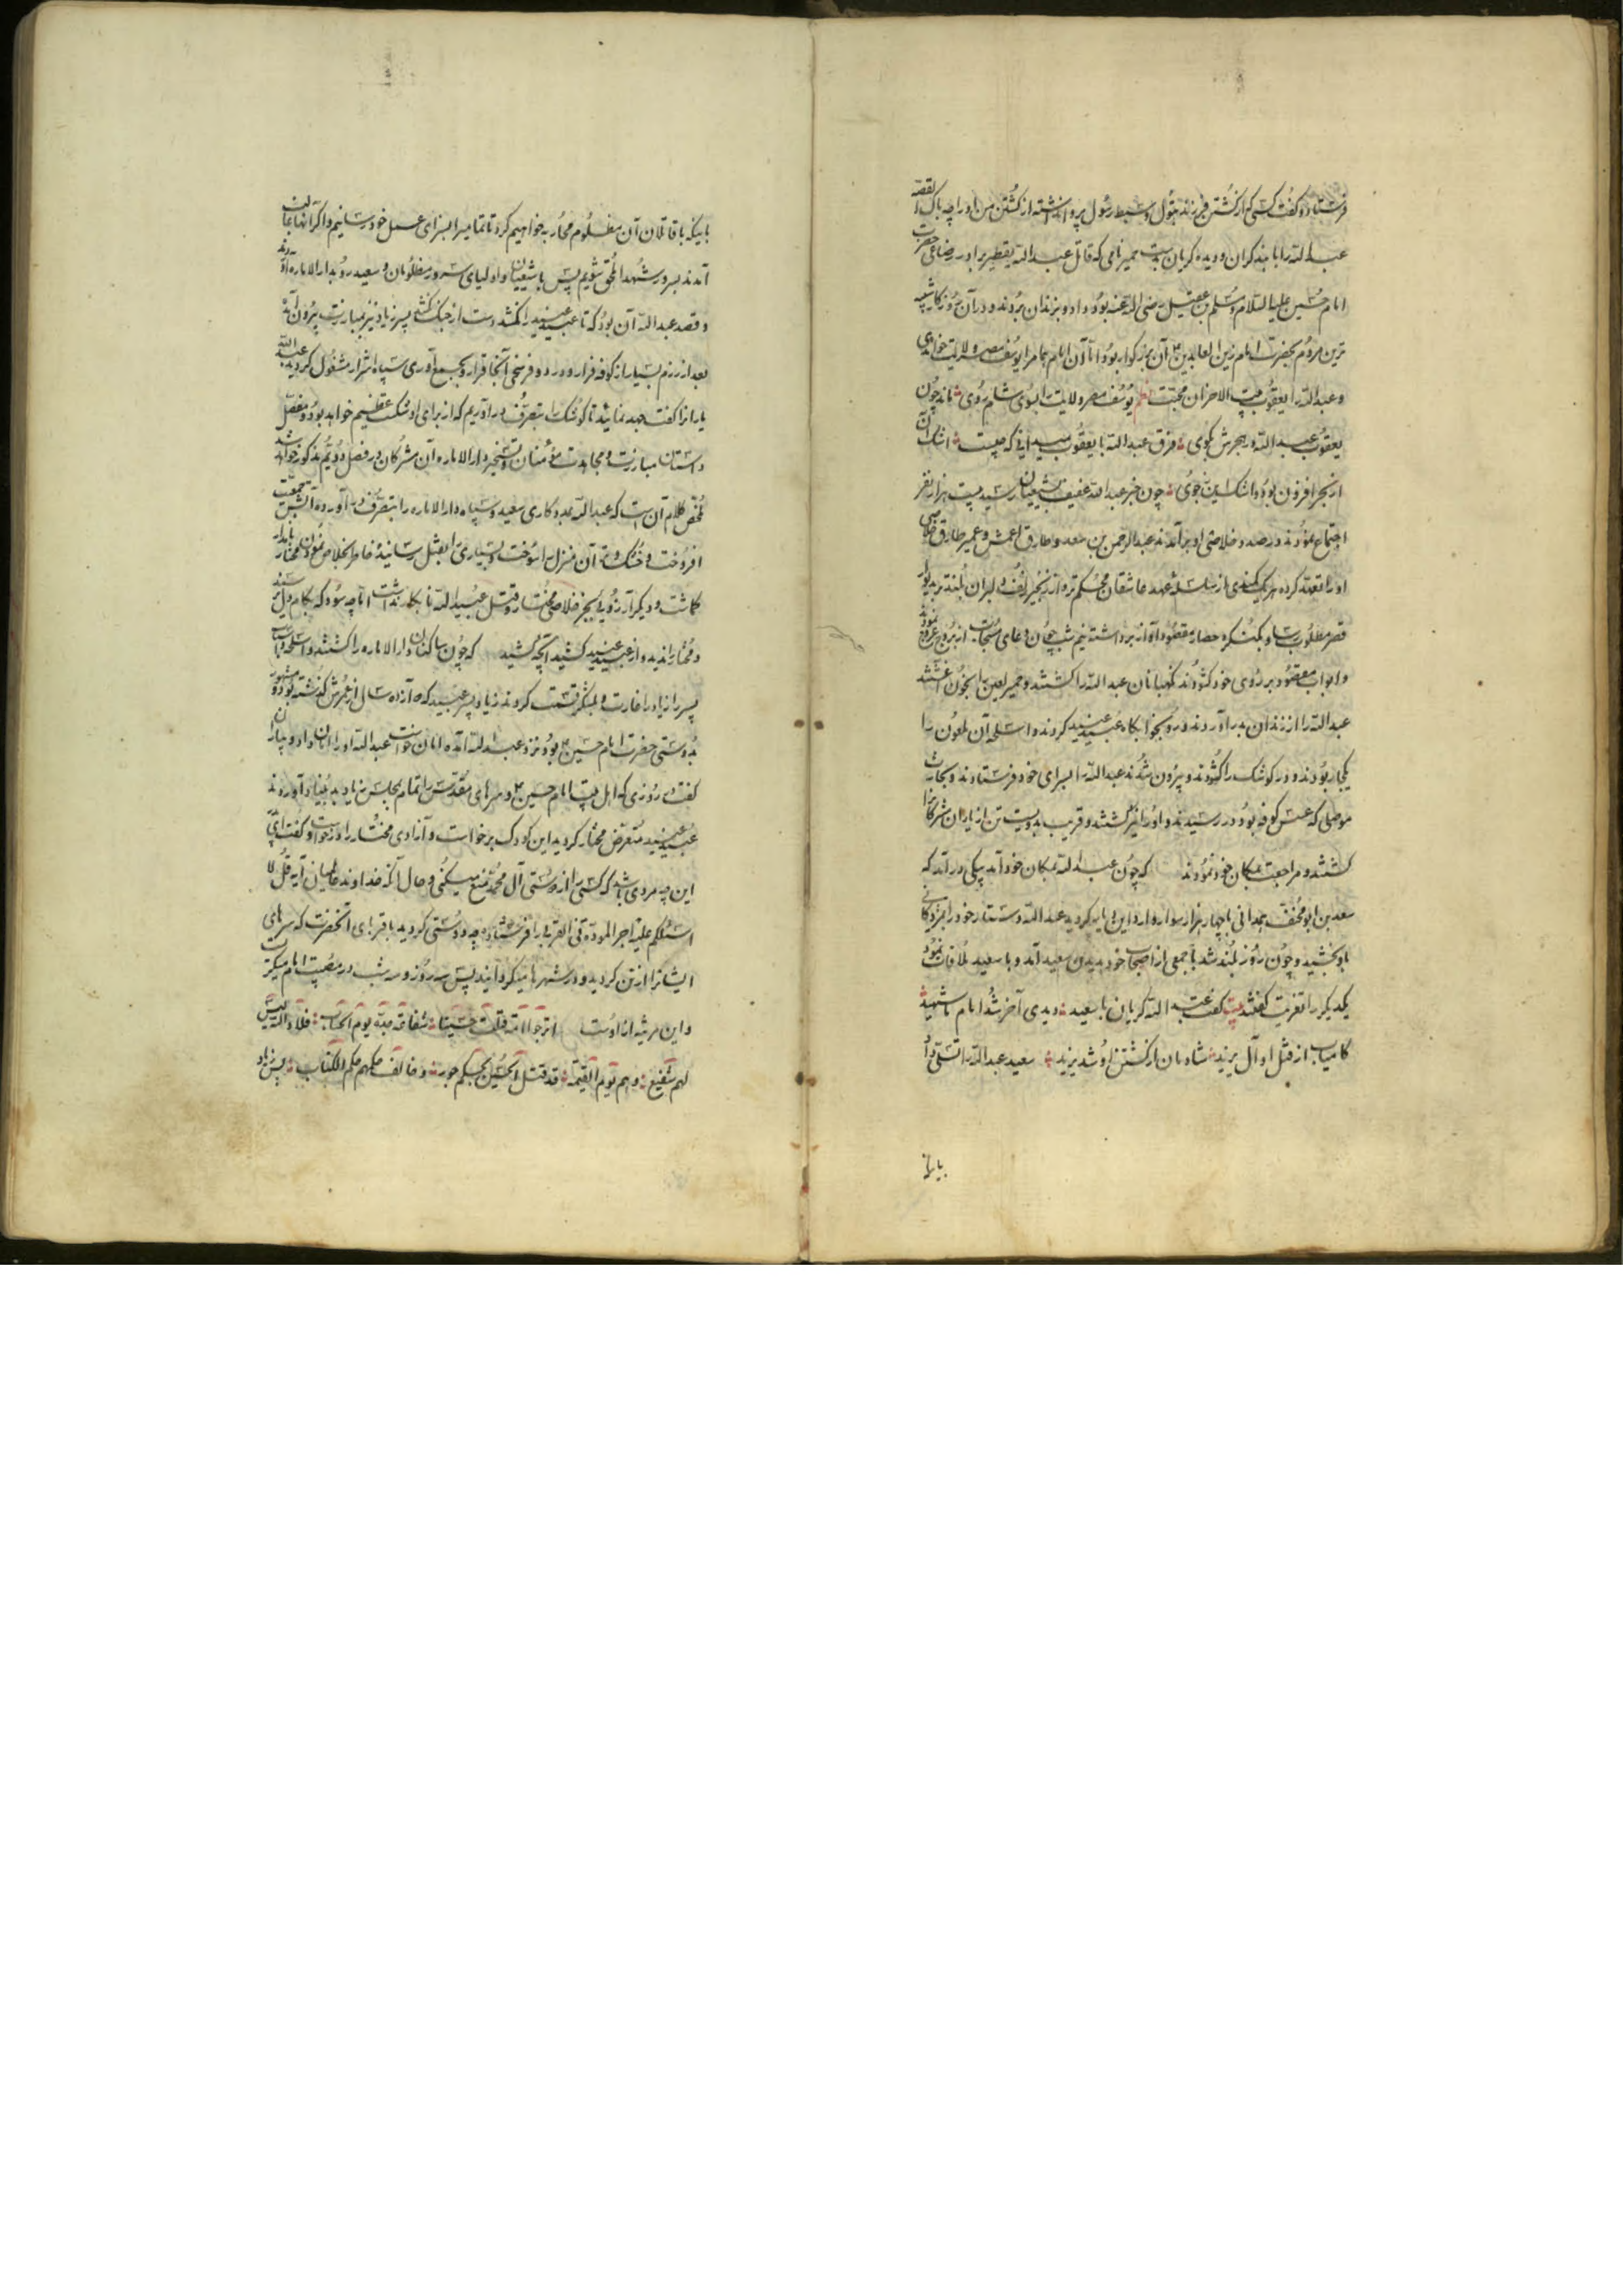 فرستاد و گفت کسی که از کشتن فرزند بتول و سبط رسول پروا نداشته از کشتن من او را چه باک القصه
عبدالله را با بند گران و دیده گریان بدست حمیر نامی که قاتل عبدالله یقطیر برادر رضاعی حضرت
امام حسین علیه السلام و مسلم بن عقیل رضی الله عنه بود داد و بزندان بردند و در آن روزگار شبیه
ترین مردم بحضرت امام زین العابدین آن بزرگوار بود اما آن امام همام را یوسف مصر ولایت خوانی
و عبدالله را یعقوب بیت الاحزان محبت نظم یوسف مصر ولایت را بسوی شام روی ماند چون
یعقوب عبدالله در هجرش بکوی فرق عبدالله با یعقوب میدانی که چیست اشک آن
از بحر افزون بود و اشک این ز جوی چون خبر عبدالله عفیف بشیعیان رسید بیست هزار نفر
اجتماع نمودند و در صدد خلاصی او برآمدند عبدالرحمن بن سعد و طارق اعمش و عمیر طارق خلاصی
او را تعهد کرده هر یک کمندی از سلسله عهد عاشقان محکم تر و از زنجیر زلف دلبران بلندتر بدیوار
قصر مطلوب و کنگره حصار مقصود آواز برداشته نیم شب چون دعای مستجاب از بروج عروج نمودند
و ابواب مقصود بر روی خود گشودند نگهبانان عبدالله را کشتند و حمیر لعین را بخون آغشتند
عبدالله را از زندان بدر آوردند و رو بخوابگاه عبید عنید کردند و اسلحه آن ملعون را
یکجا ربودند و در کوشک را گشودند و بیرون شدند عبدالله را بسرای خود فرستادند و بحارث
موصلی که عسس کوفه بود در رسیدند و او را نیز کشتند و قریب بدویست تن از یاران مشرکان را
کشتند و مراجعت بمکان خود نمودند که چون عبدالله بمکان خود آمد پیکی درآمد که
سعد بن ابو مخنف همدانی با چهار هزار سوار وارد این گردید عبدالله دستار خود را بمژدگانی
باو بخشید و چون روز بلند شد با جمعی از اصحاب خود بدیدن سعید آمد و با سعید ملاقات نمود
یکدیگر را تعزیت گفتند بیت گفت عبدالله گریان با سعید دیدی آخر شد امام ما شهید
کامیاب از قتل او آل یزید شادمان از کشتن او شد یزید سعید عبدالله را تسلی داد
یارانرا
با اینکه با قاتلان آن مظلوم محاربه خواهیم کرد تا تمامی را بسزای عمل خود رسانیم و اگر آنها غالب
آمدند بسرور شهدا ملحق شویم پس با شیعیان و اولیای سرور مظلومان و سعید رو بدارالاماره آوردند
و قصد عبدالله آن بود که تا عبید عنید را نکشد دست از جنگ نکشد پسر زیاد نیز بمبارزت بیرون آمد
بعد از رزم بسیار از کوفه فرار و در دو فرسخی آنجا قرار و بجمع آوری سپاه اشرار مشغول گردید عبدالله
یارانرا گفت جهد نمائید تا کوشک را بتصرف در آوریم که از برای او شکست عظیم خواهد بود و مفصل
داستان مبارزت و مجاهدت مؤمنان و تسخیر دارالاماره آن مشرکان در فصل دویم مذکور خواهد شد
ملخص کلام آن است که عبدالله بمددکاری سعید و سپاه دارالاماره را بتصرف در آورده آتش جمعیت
افروخت و خشک و تر آن منزل را سوخت و بسیاری را بقتل رسانید خاطر بخلاص نمودن مختار نامدار
گماشت و دیگر آرزویی بجز خلاصی مختار و قتل عبیدالله نابکار نداشت اما چه سود که بکام دل نرسید
و مختار را ندید و از عبید عنید کشید آنچه کشید که چون ساکنان دارالاماره را کشتند و اسلحه و اسباب
پسر زیاد را غارت و بلشکر قسمت کردند زیاد پسر عبید که دوازده سال از عمرش گذشته بود و مشهور
بدوستی حضرت امام حسین بود نزد عبدالله آمده امان خواست عبدالله او را امان داد و بیاران
گفت روزی که اهل بیت امام حسین و سرهای مقدس را تمام بمجلس زیاد بد بنیاد آوردند
عبید عنید متعرض مختار گردید این کودک برخواست و آزادی مختار را درخواست و گفت ای پدر
این چه مردی باشد که کسی را از دوستی آل محمد منع میکنی و حال آنکه خداوند عالمیان آیه قل لا
اسئلکم علیه اجرا الا المودة فی القربی را فرستاده چه دوستی کردید با قربای آنحضرت که سرهای
ایشانرا از تن کردید و در شهرها میگردانید پس سه روز و سه شب در مصیبت امام میگریست
و این مرثیه از اوست اترجو امة قتلت حسینا شفاعة جده یوم الحساب فلا والله لیس
لهم شفیع وهم یوم القیمة قد قتل الحسین بحکم جور وخالف حکمهم حکم الکتاب پس زیاد